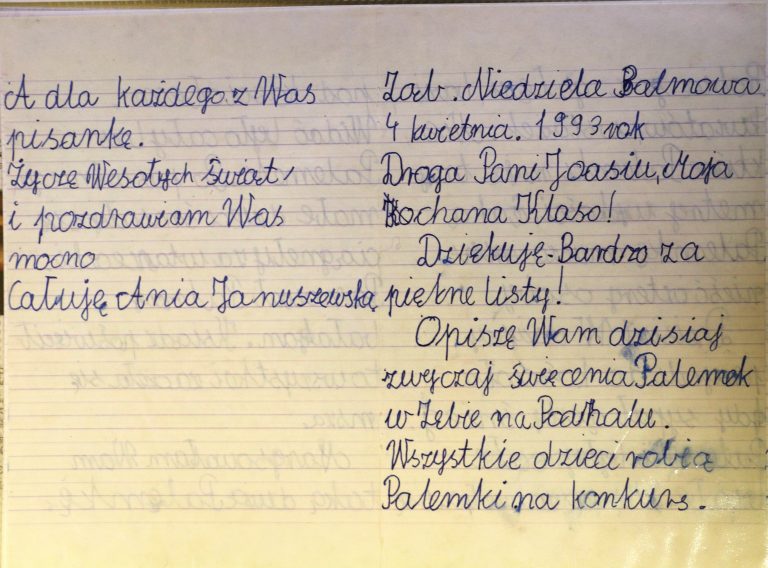 A dla każdego z Was
pisankę.
Życzę Wesołych świąt
i pozdrawiam Was
mocno
Całuję Ania Januszewska
Ząb. Niedziela Palmowa
4 kwietnia. 1993 rok
Droga Pani Joasiu, Moja
Kochana Klaso!
Dziękuję Bardzo za
piękne listy!
Opiszę Wam dzisiaj
zwyczaj święcenia Palemek
w Zębie na Podhalu.
Wszystkie dzieci robią
Palemki na konkurs.